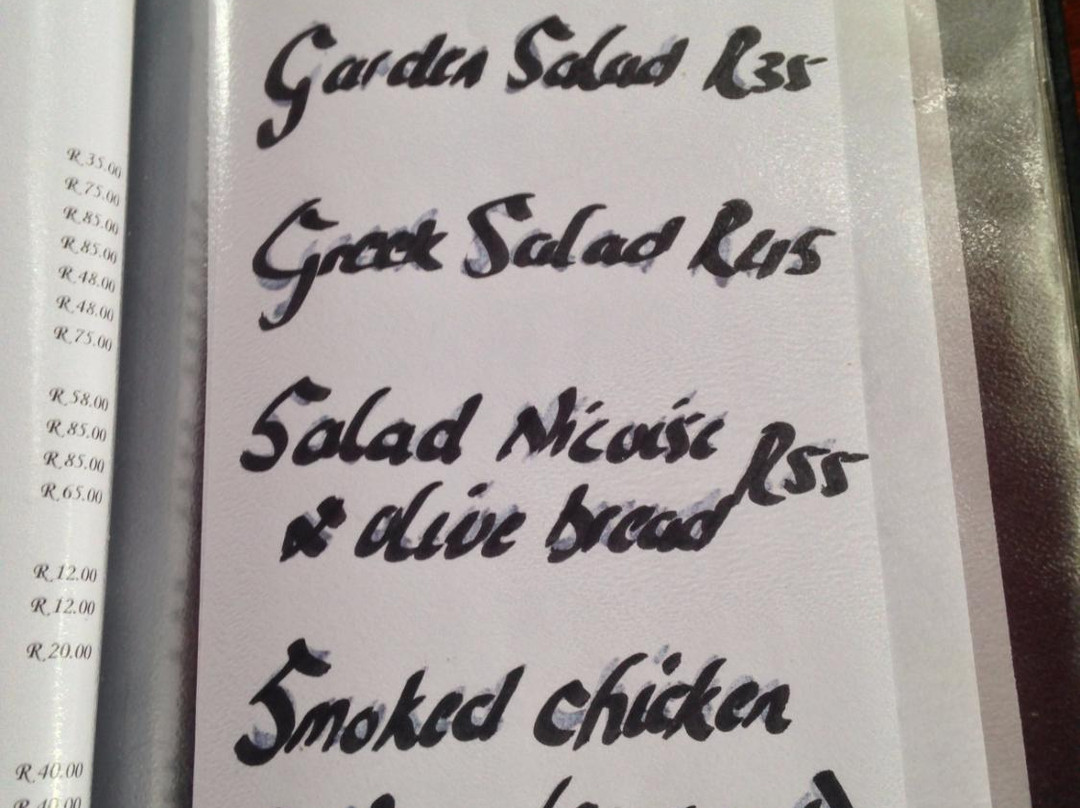 R.35.00
R.75.00
R.85.00
R.85.00
R.48.00
R.48.00
R.75.00
R.58.00
R.85.00
R.85.00
R.65.00
R.12.00
R.12.00
R.20.00
R.40.00
R.40.00
Garden Salad R35
Greek Salad R45
Salad Nicoise R55
& olive bread
Smoked chicken